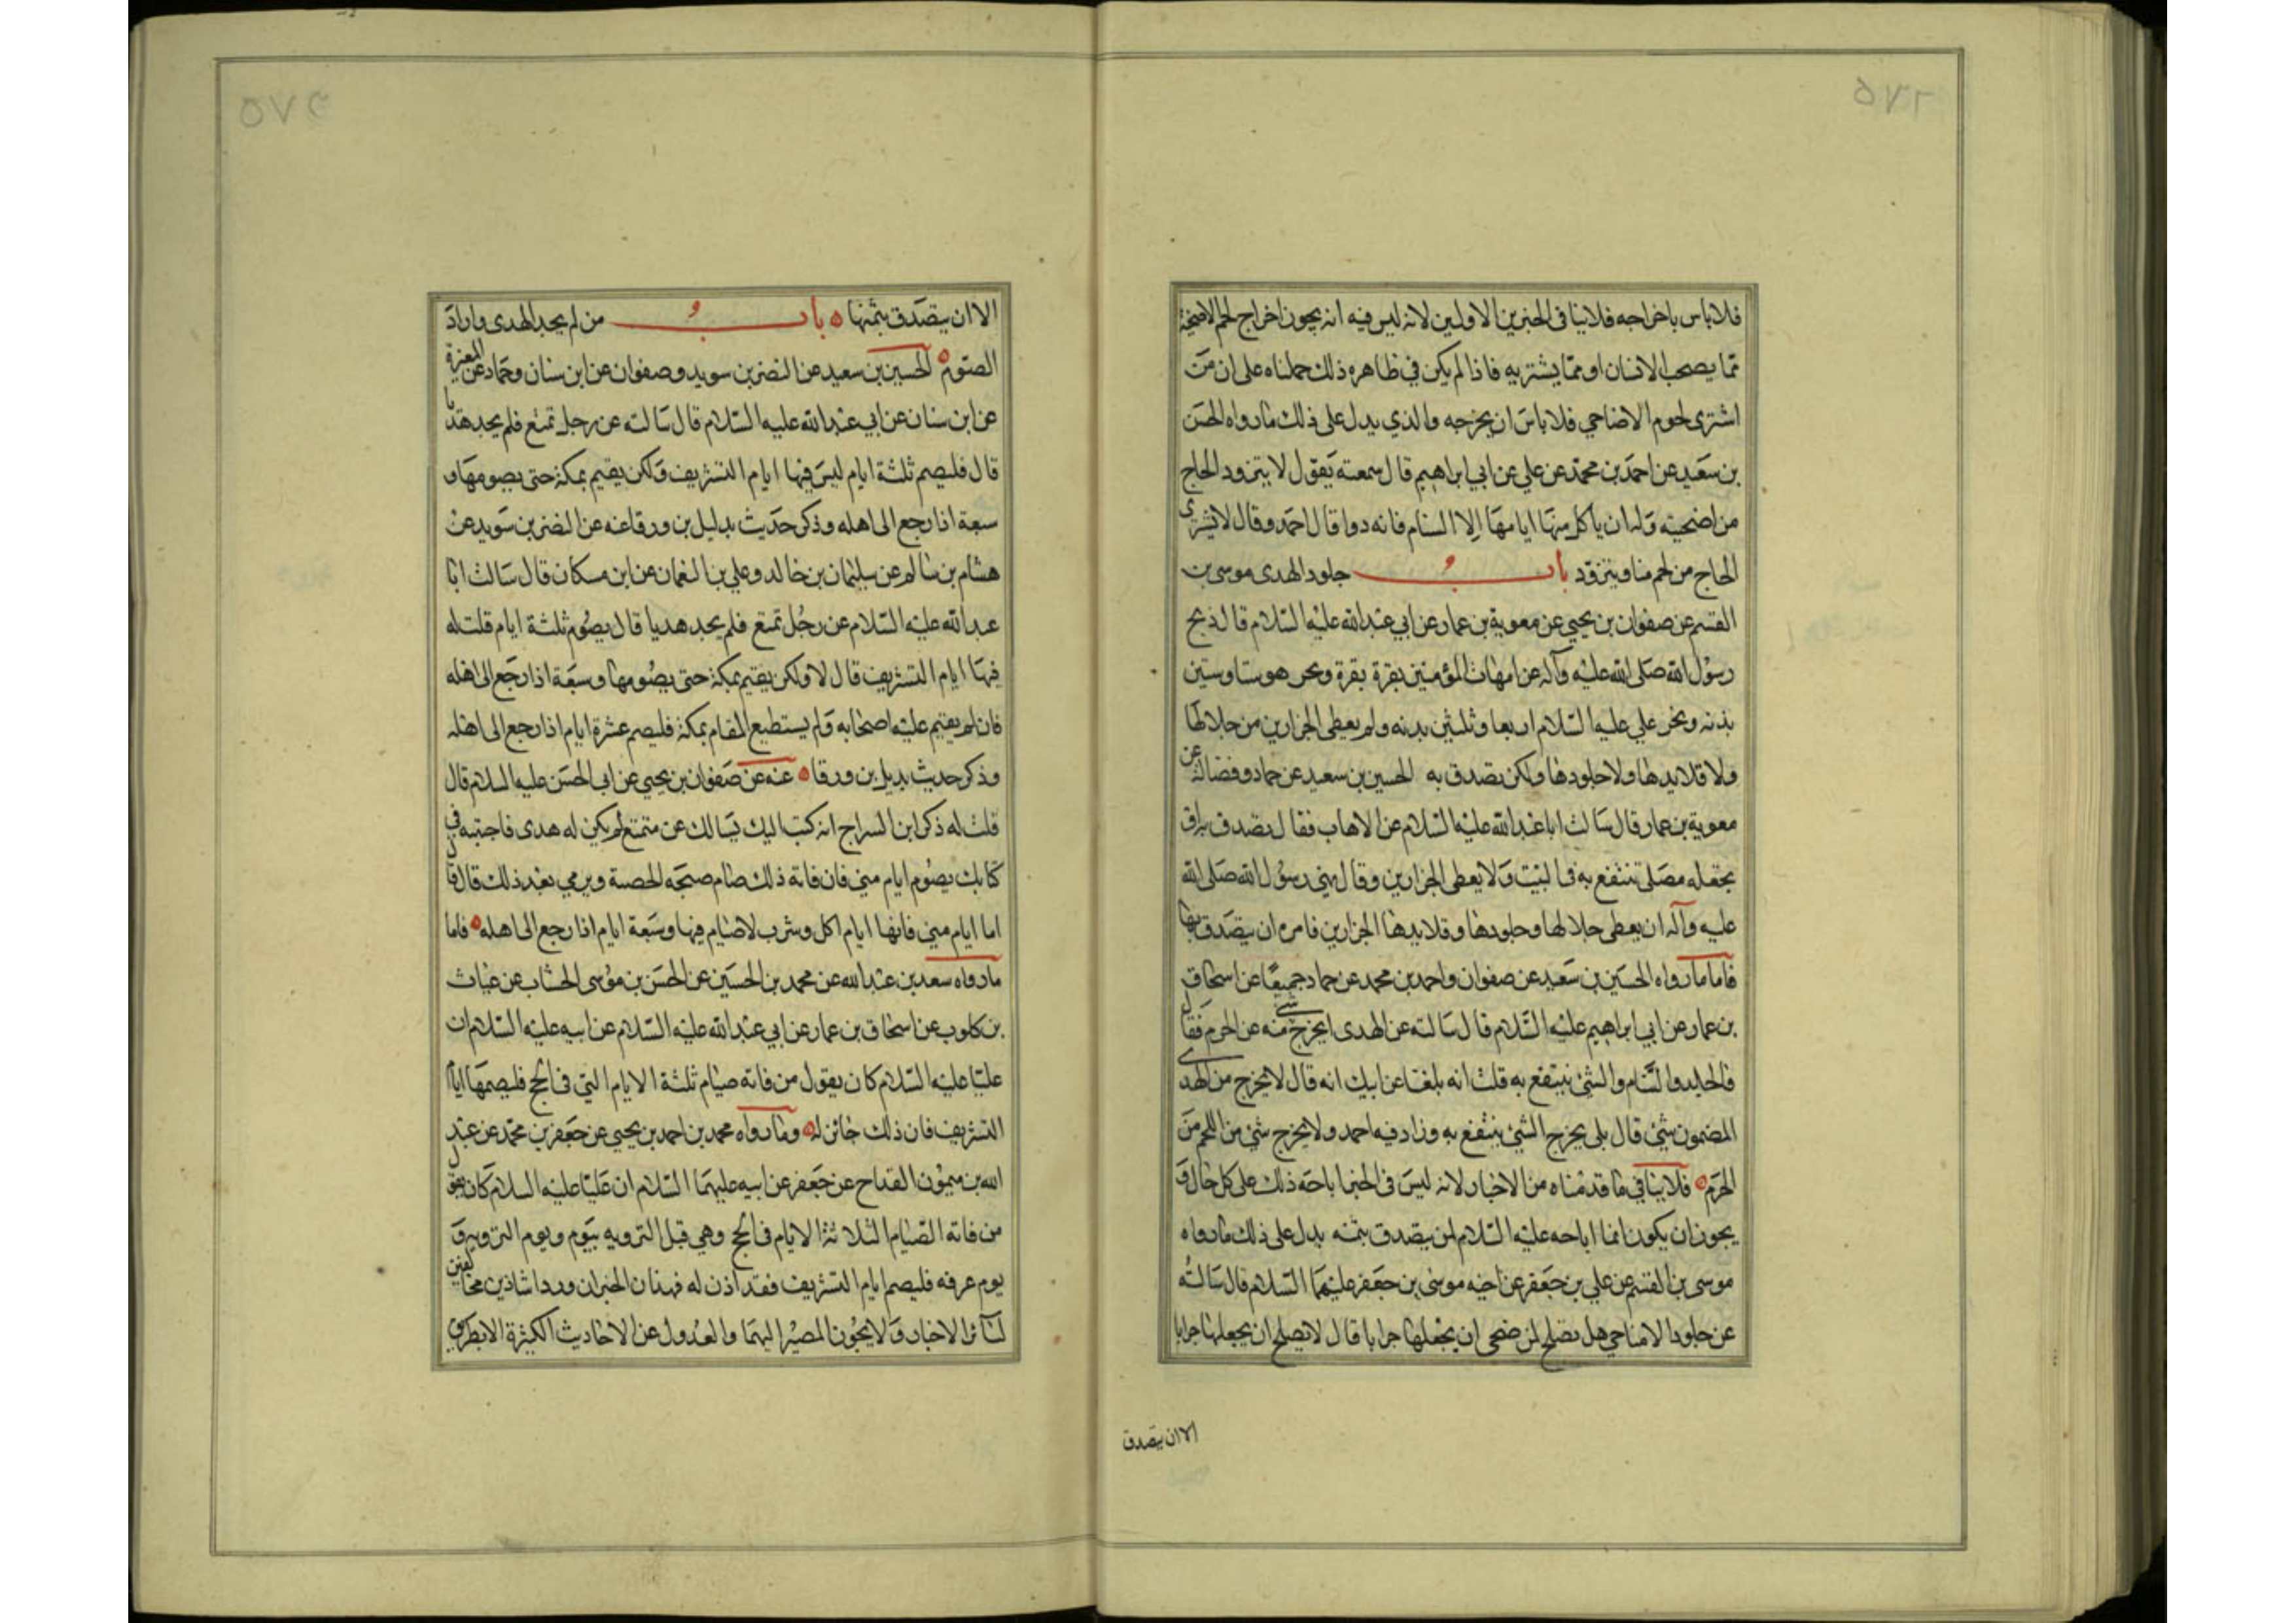 فلا باس باخراجه فلا ينافي الخبرين الاولين لانه ليس فيه انه يجوز اخراج لحم الاضحية
مما يصحب الانسان او مما يشتريه فاذا لم يكن في ظاهره ذلك حملناه على ان من
اشترى لحوم الاضاحي فلا باس ان يخرجه والذي يدل على ذلك ما رواه الحسن
بن سعيد عن احمد بن محمد عن علي عن ابي ابراهيم قال سمعته يقول لا يتزود الحاج
من اضحيته وله ان ياكل منها ايامها الا السنام فانه دوا قال احمد وقال لا يشتري
الحاج من لحم منا ويتزود باب جلود الهدى موسى بن
القسم عن صفوان بن يحيى عن معوية بن عمار عن ابي عبد الله عليه السلام قال ذبح
رسول الله صلى الله عليه وآله عن امهات المؤمنين بقرة بقرة ونحر هو ستا وستين
بدنه ونحر علي عليه السلام اربعا وثلثين بدنه ولم يعطى الجزارين من جلالها
ولا قلايدها ولا جلودها ولكن تصدق به الحسين بن سعيد عن حماد وفضالة عن
معوية بن عمار قال سالت ابا عبد الله عليه السلام عن الاهاب فقال تصدق به او
يجعله مصلى ينتفع به في البيت ولا يعطى الجزارين وقال نهى رسول الله صلى الله
عليه وآله ان يعطى جلالها وجلودها وقلايدها الجزارين فامره ان يتصدق بها
فاما ما رواه الحسين بن سعيد عن صفوان واحمد بن محمد عن حماد جميعا عن اسحاق
بن عمار عن ابي ابراهيم عليه السلام قال سالته عن الهدى ايخرج شي منه عن الحرم فقال
فالجلد والسنام والشئ ينتفع به قلت انه بلغنا عن ابيك انه قال لا يخرج من الهدى
المضمون شئ قال بلى يخرج الشئ ينتفع به وزاد فيه احمد ولا يخرج شئ من اللحم من
الحرم فلا ينافي ما قدمناه من الاخبار لانه ليس في الخبر اباحة ذلك على كل حال و
يجوز ان يكون انما اباحه عليه السلام لمن يتصدق بثمنه يدل على ذلك ما رواه
موسى بن القسم عن علي بن جعفر عن اخيه موسى بن جعفر عليهما السلام قال سالته
عن جلود الاضاحي هل يصلح لمن ضحى ان يجعلها جرابا قال لا يصلح ان يجعلها جرابا
الا ان يتصدق
الا ان يتصدق بثمنها باب من لم يجد الهدى واراد
الصوم الحسين بن سعيد عن النضر بن سويد وصفوان عن ابن سنان وحماد عن المغيرة
عن ابن سنان عن ابي عبد الله عليه السلام قال سالته عن رجل تمتع فلم يجد هديا
قال فليصم ثلثة ايام ليس فيها ايام التشريف ولكن يقيم بمكة حتى يصومها و
سبعة اذا رجع الى اهله وذكر حديث بديل بن ورقا عنه عن النضر بن سويد عن
هشام بن سالم عن سليمان بن خالد وعلي بن النعمان عن ابن مسكان قال سالت ابا
عبد الله عليه السلام عن رجل تمتع فلم يجد هديا قال يصوم ثلثة ايام قلت له
فيها ايام التشريف قال لا ولكن يقيم بمكة حتى يصومها وسبعة اذا رجع الى اهله
فان لم يقيم عليه اصحابه ولم يستطيع المقام بمكة فليصم عشرة ايام اذا رجع الى اهله
وذكر حديث بديل بن ورقا عنه عن صفوان بن يحيى عن ابي الحسن عليه السلام قال
قلت له ذكر ابن السراج انه كتب اليك يسالك عن متمتع لم يكن له هدى فاجبته في
كتابك يصوم ايام منى فان فاته ذلك صام صبحه الحصبة ويومي بعد ذلك قال قال
اما ايام منى فانها ايام اكل وشرب لا صيام فيها وسبعة ايام اذا رجع الى اهله فاما
ما رواه سعد بن عبد الله عن محمد بن الحسين عن الحسن بن موسى الخشاب عن غياث
بن كلوب عن اسحاق بن عمار عن ابي عبد الله عليه السلام عن ابيه عليه السلام ان
عليا عليه السلام كان يقول من فاته صيام ثلثة الايام التي في الحج فليصمها ايام
التشريف فان ذلك جائز له وما رواه محمد بن احمد بن يحيى عن جعفر بن محمد عن عبد
الله بن ميمون القداح عن جعفر عن ابيه عليهما السلام ان عليا عليه السلام كان يقول
من فاته الصيام الثلاثة الايام في الحج وهي قبل الترويه بيوم ويوم الترويه و
يوم عرفه فليصم ايام التشريف فقد اذن له فهذان الخبران وردا شاذين مخالفين
لسائر الاخبار ولا يجوز المصير اليهما والعدول عن الاحاديث الكثيرة الا بطريق